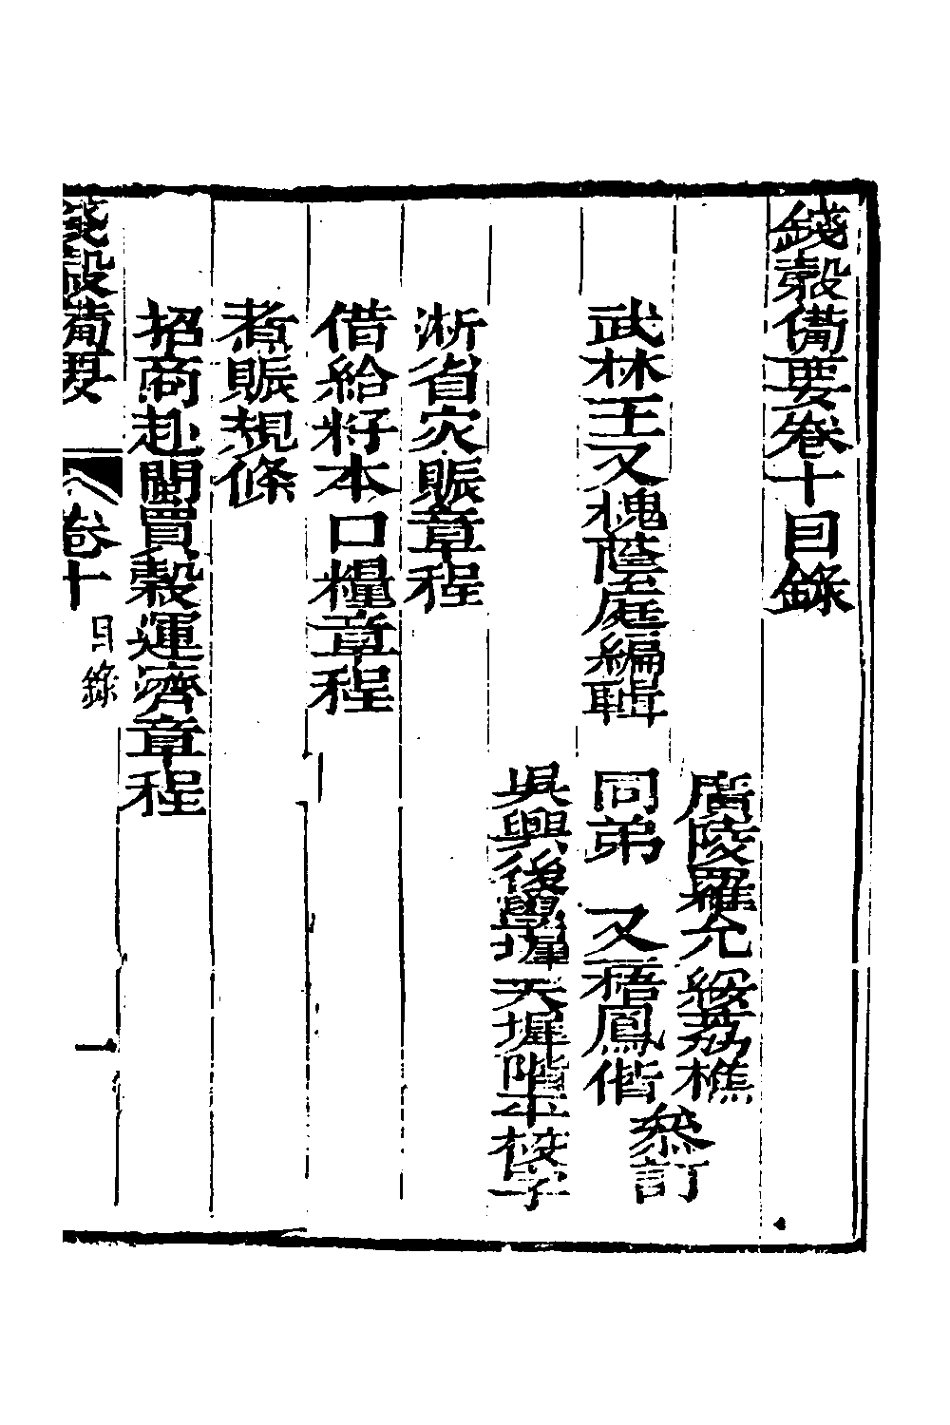 錢穀備要卷十目錄
廣陵羅允綏荔樵
武林王又槐蔭庭編輯 同弟 又梧鳳偕
叅訂
吳興後學 天墀階平校字
浙省灾賑章程
借給籽本口糧章程
煮賑規條
招商赴閩買穀運濟章程
錢穀備要 卷十 目錄 一